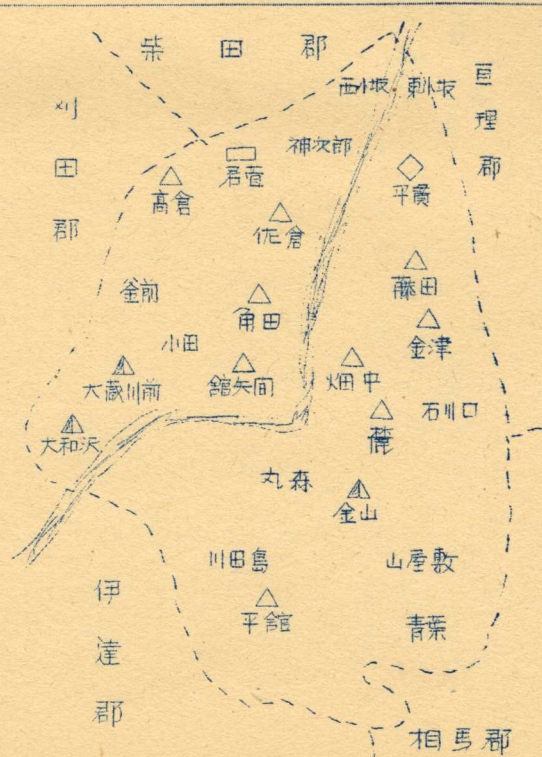 柴田郡
刈田郡
亘理郡
西小坂
東小坂
神次郎
君萱
高倉
平貫
佐倉
藤田
釜前
角田
金津
小田
大蔵川前
舘矢間
畑中
石川口
大和沢
丸森
金山
川田島
山屋敷
平舘
青葉
伊達郡
相馬郡